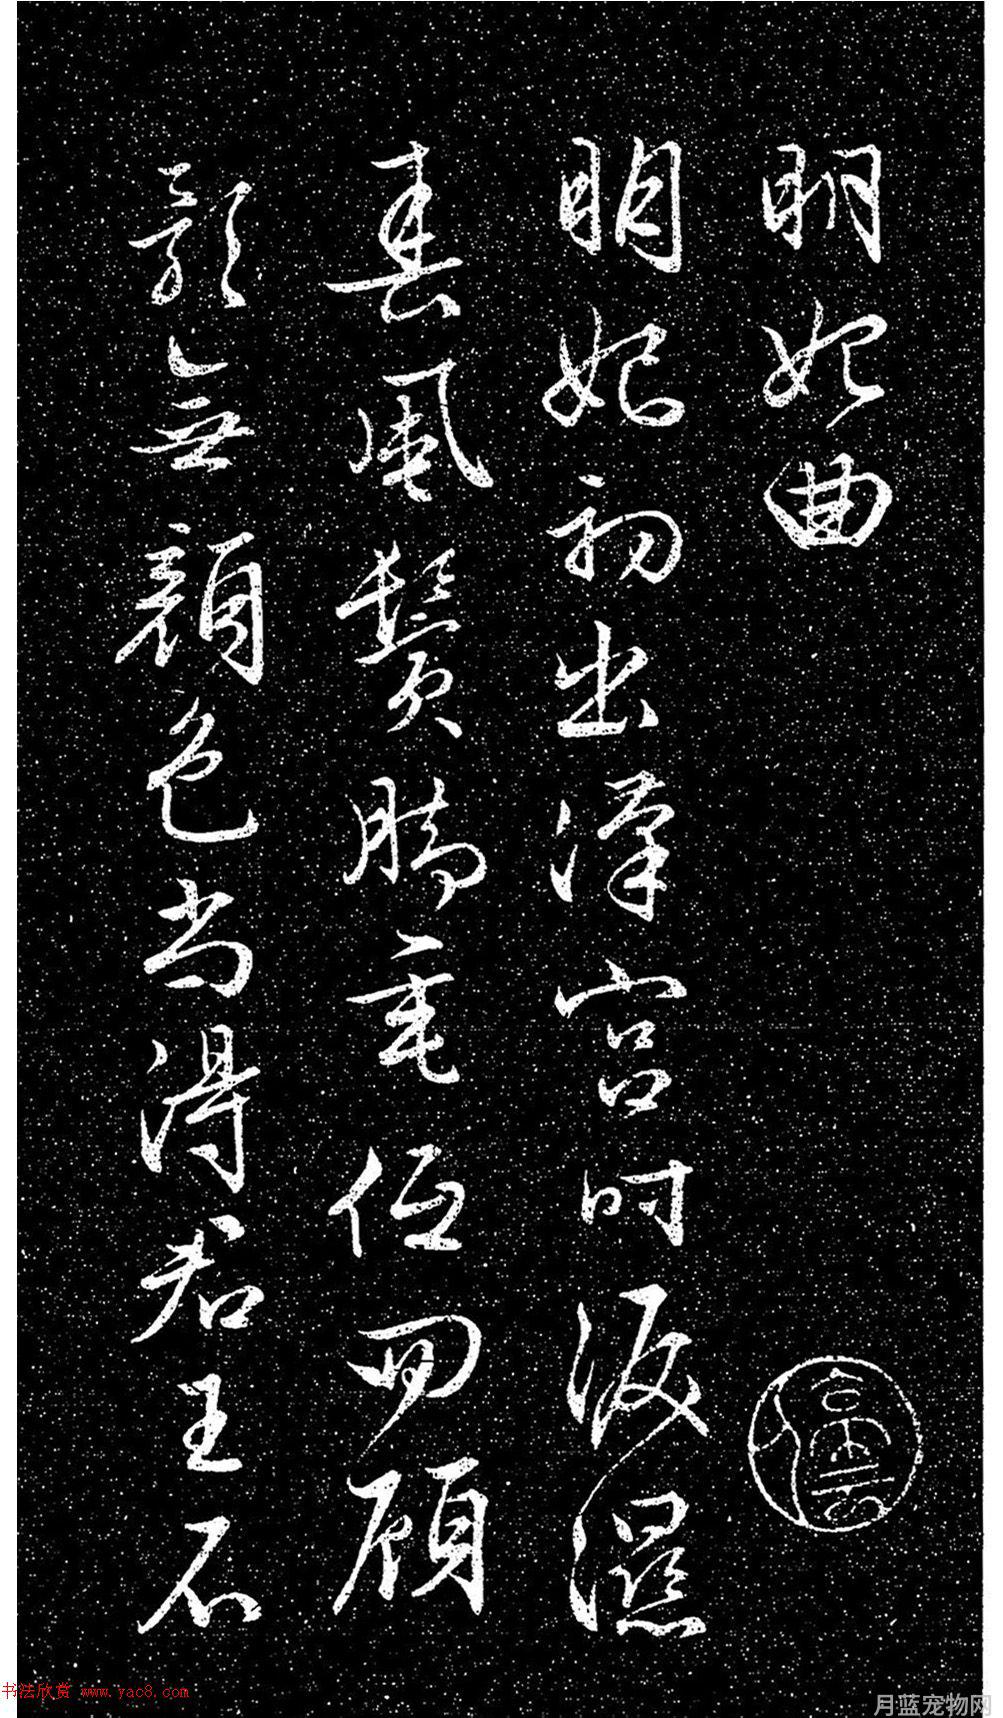 明妃曲
明妃初出漢宮時淚濕
春風鬢腳垂低回顧
影無顏色尚得君王不
书法欣赏 www.yac8.com
月蓝宠物网